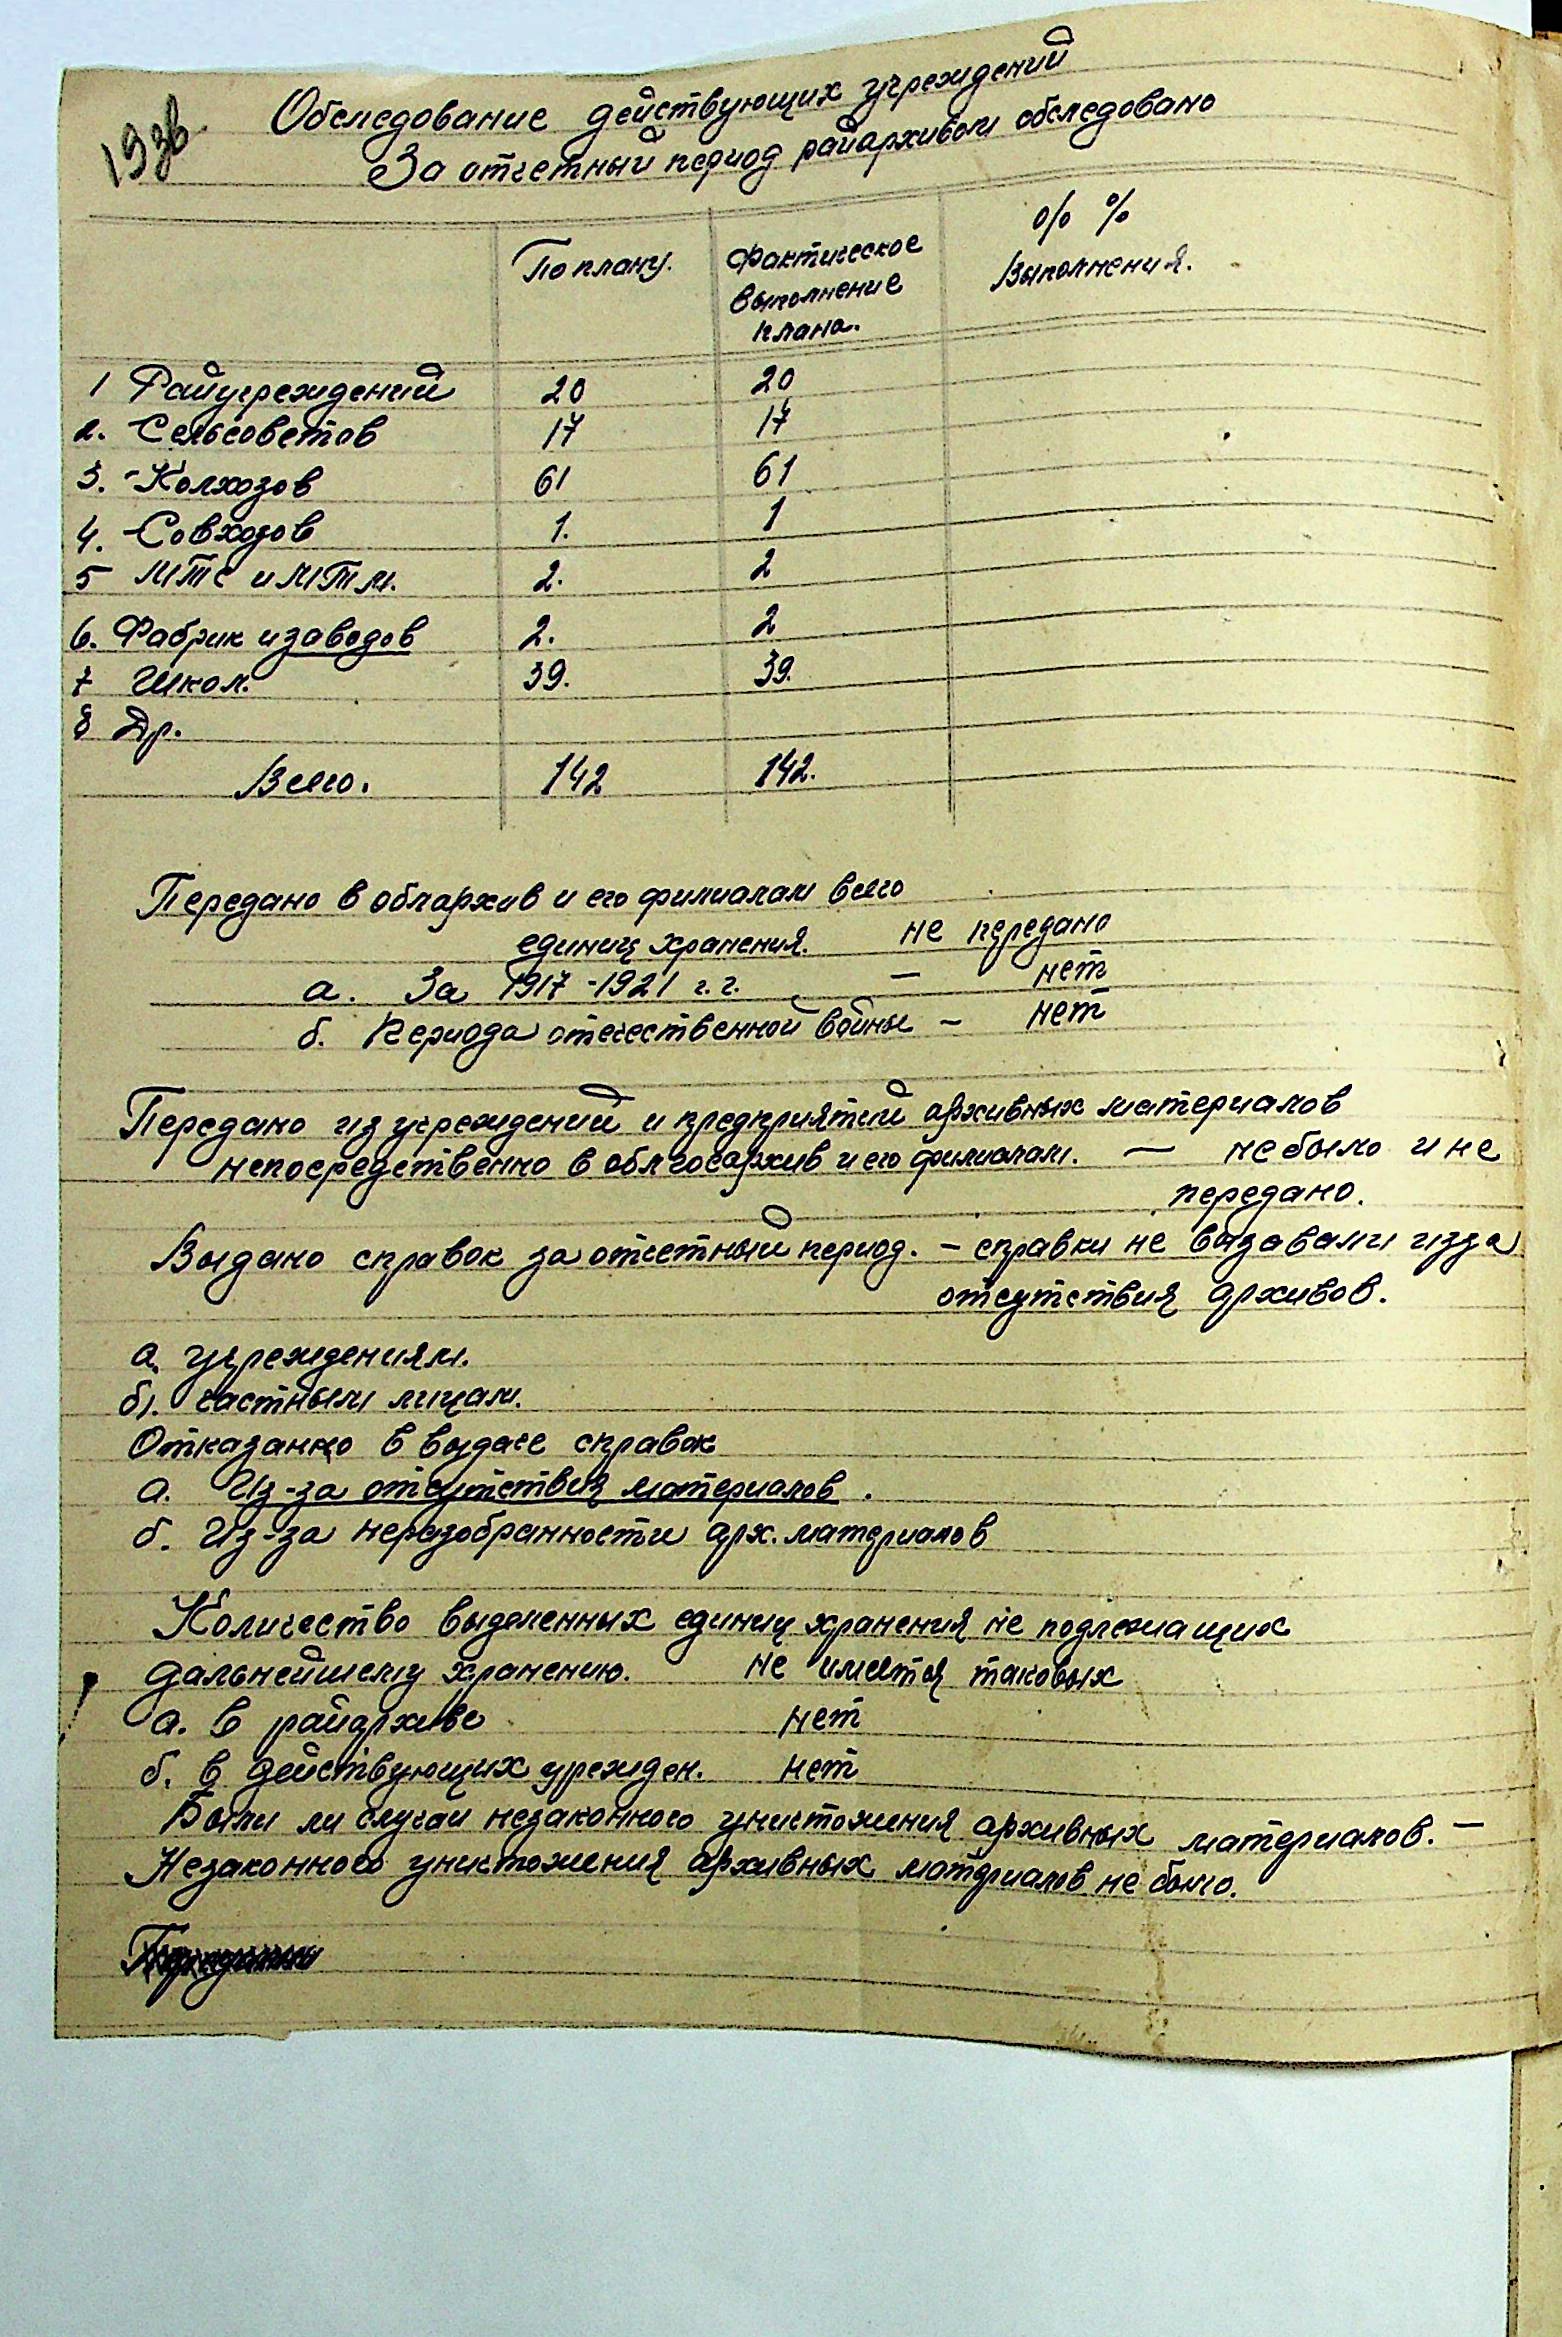 19зв.
Обследование действующих учреждений
За отчетный период райархивом обследовано
По плану. Фактическое выполнение плана. % % Выполнения.
1 Райучреждений 20 20
2. Сельсоветов 17 17
3. Колхозов 61 61
4. Совхозов 1. 1
5 МТС и МТМ. 2. 2
6. Фабрик и заводов 2. 2
7 Школ. 39. 39.
8 Др.
Всего. 142 142.
Передано в облархив и его филиалам всего
единиц хранения. не передано
а. За 1917-1921 г.г. – нет
б. Периода отечественной войны – нет
Передано из учреждений и предприятий архивных материалов
непосредственно в облгосархив и его филиалам. — не было и не
передано.
Выдано справок за отчетный период. – справки не выдавали изза
отсутствия архивов.
а. учреждениям.
б). частным лицам.
Отказанно в выдаче справок
а. Из-за отсутствия материалов.
б. Из-за неразобранности арх. материалов
Количество выделенных единиц хранения не подлежащих
дальнейшему хранению. не имеится таковых
а. в райархиве нет
б. в действующих урежден. нет
Были ли случаи незаконного уничтожения архивных материалов. –
Незаконного уничтожения архивных материалов не было.